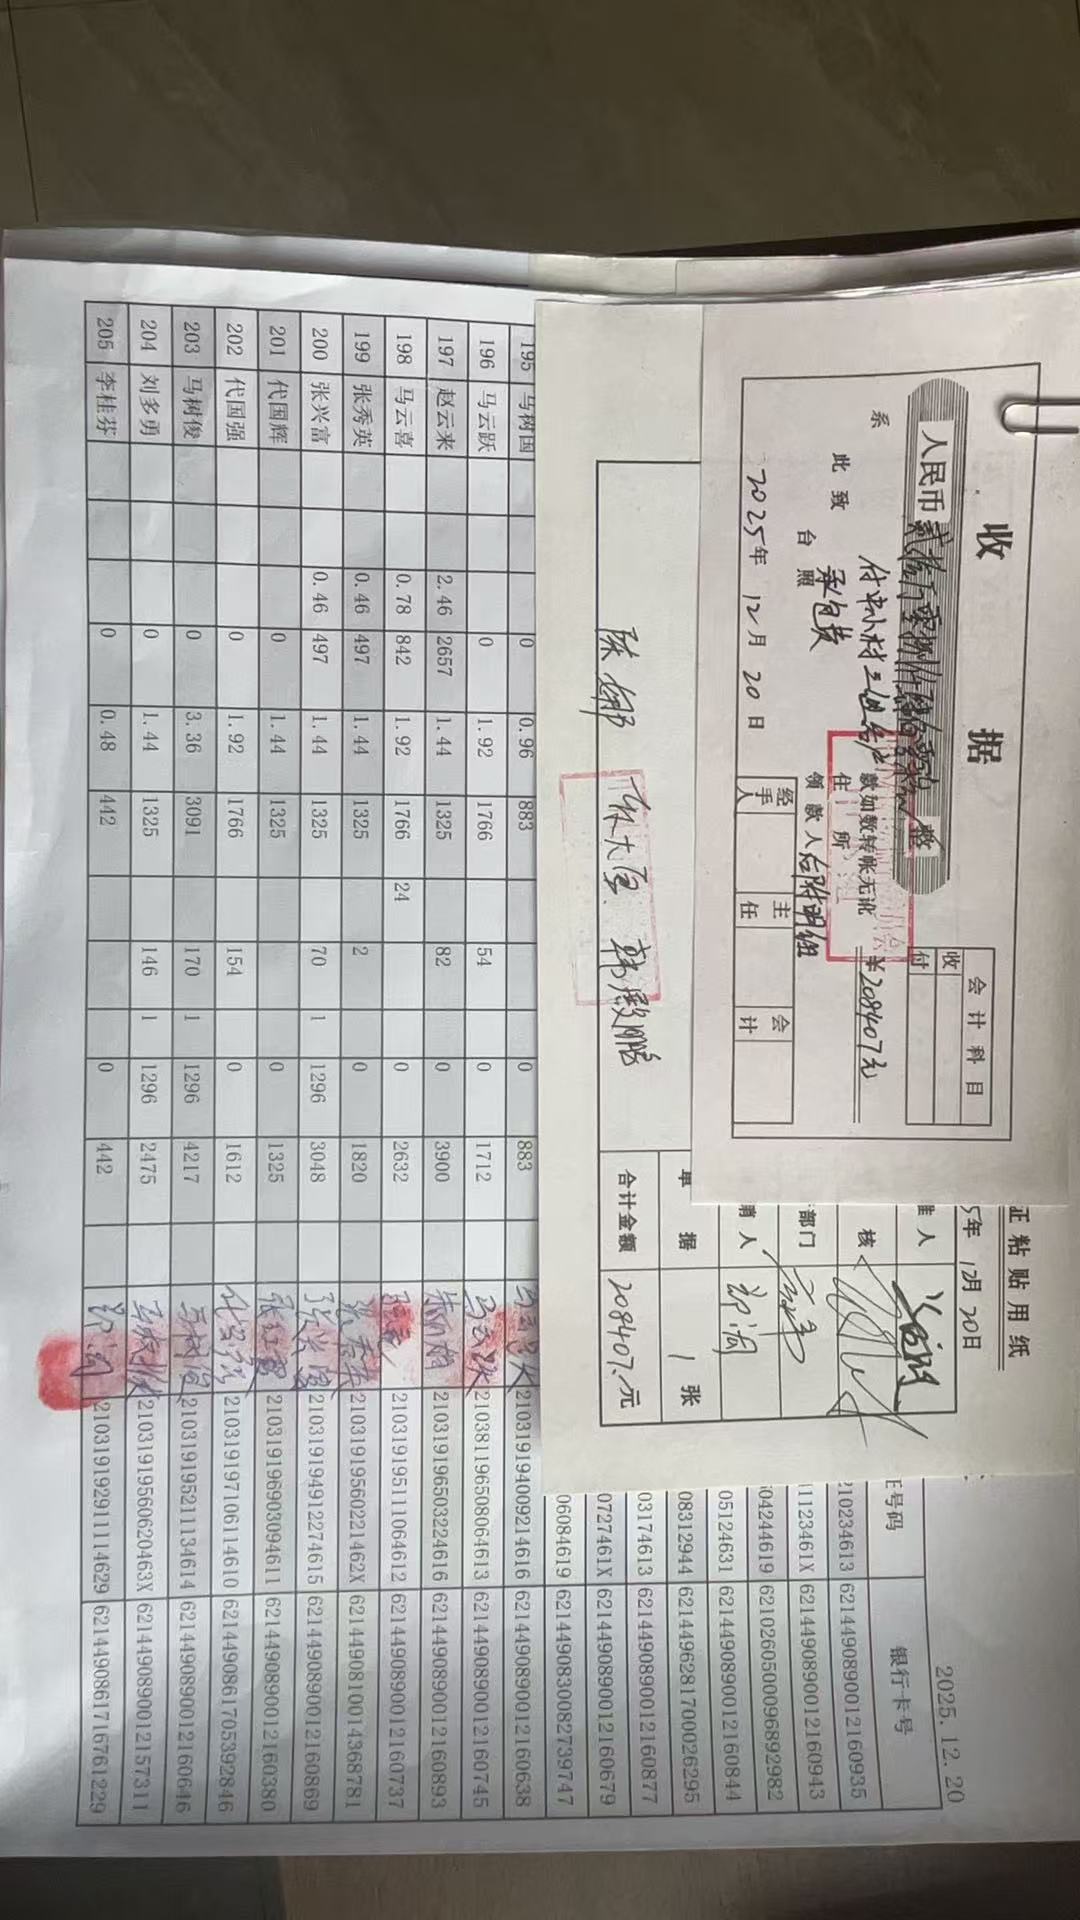 收 据
人民币 整
会计科目
收
付
付 小村三组各户 款如数转帐无讹 ￥208407元
系 承包费
此致
台照
住所
领款人 后附明细
2025年 12月 20日
经手人
主任
会计
证粘贴用纸
5年 12月 20日
准人
核
部门
销人 郭闯
单据 1 张
合计金额 208407.元
陈娜
2025.12.20
证号码 银行卡号
210234613 6214490890012160935
11123461X 6214490890012160943
504244619 6210260500096892982
05124631 6214490890012160844
08312944 6214496281700026295
03174613 6214490890012160877
0727461X 6214490890012160679
06084619 6214490830082739747
195 马树国 0 0.96 883 0 883 210319194009214616 6214490890012160638
196 马云跃 0 1.92 1766 54 0 1712 马云跃 210381196508064613 6214490890012160745
197 赵云来 2.46 2657 1.44 1325 82 0 3900 210319196503224616 6214490890012160893
198 马云喜 0.78 842 1.92 1766 24 0 2632 210319195111064612 6214490890012160737
199 张秀英 0.46 497 1.44 1325 2 0 1820 21031919560221462X 6214490810014368781
200 张兴富 0.46 497 1.44 1325 70 1 1296 3048 张兴富 210319194912274615 6214490890012160869
201 代国辉 0 1.44 1325 0 1325 210319196903094611 6214490890012160380
202 代国强 0 1.92 1766 154 0 1612 210319197106114610 6214490861705392846
203 马树俊 0 3.36 3091 170 1 1296 4217 马树俊 210319195211134614 6214490890012160646
204 刘多勇 0 1.44 1325 146 1 1296 2475 21031919560620463X 6214490890012157311
205 李桂芬 0 0.48 442 0 442 郭闯 210319192911114629 6214490861716761229